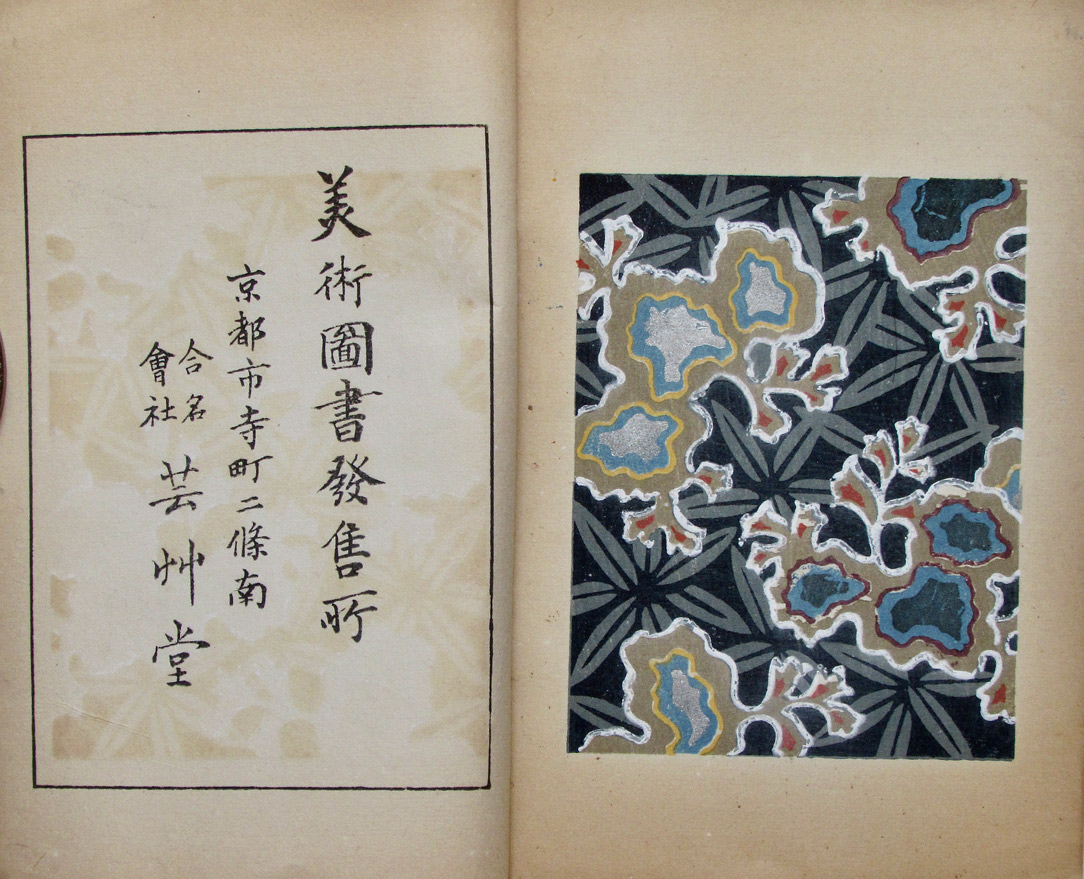 美術圖書發售所
京都市寺町二條南
合名
會社
芸艸堂